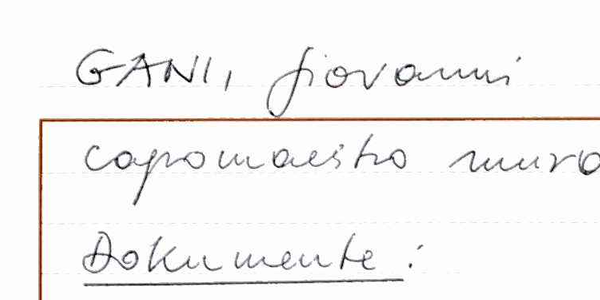 GANI, Giovanni
capomaestro muro
Dokumente: